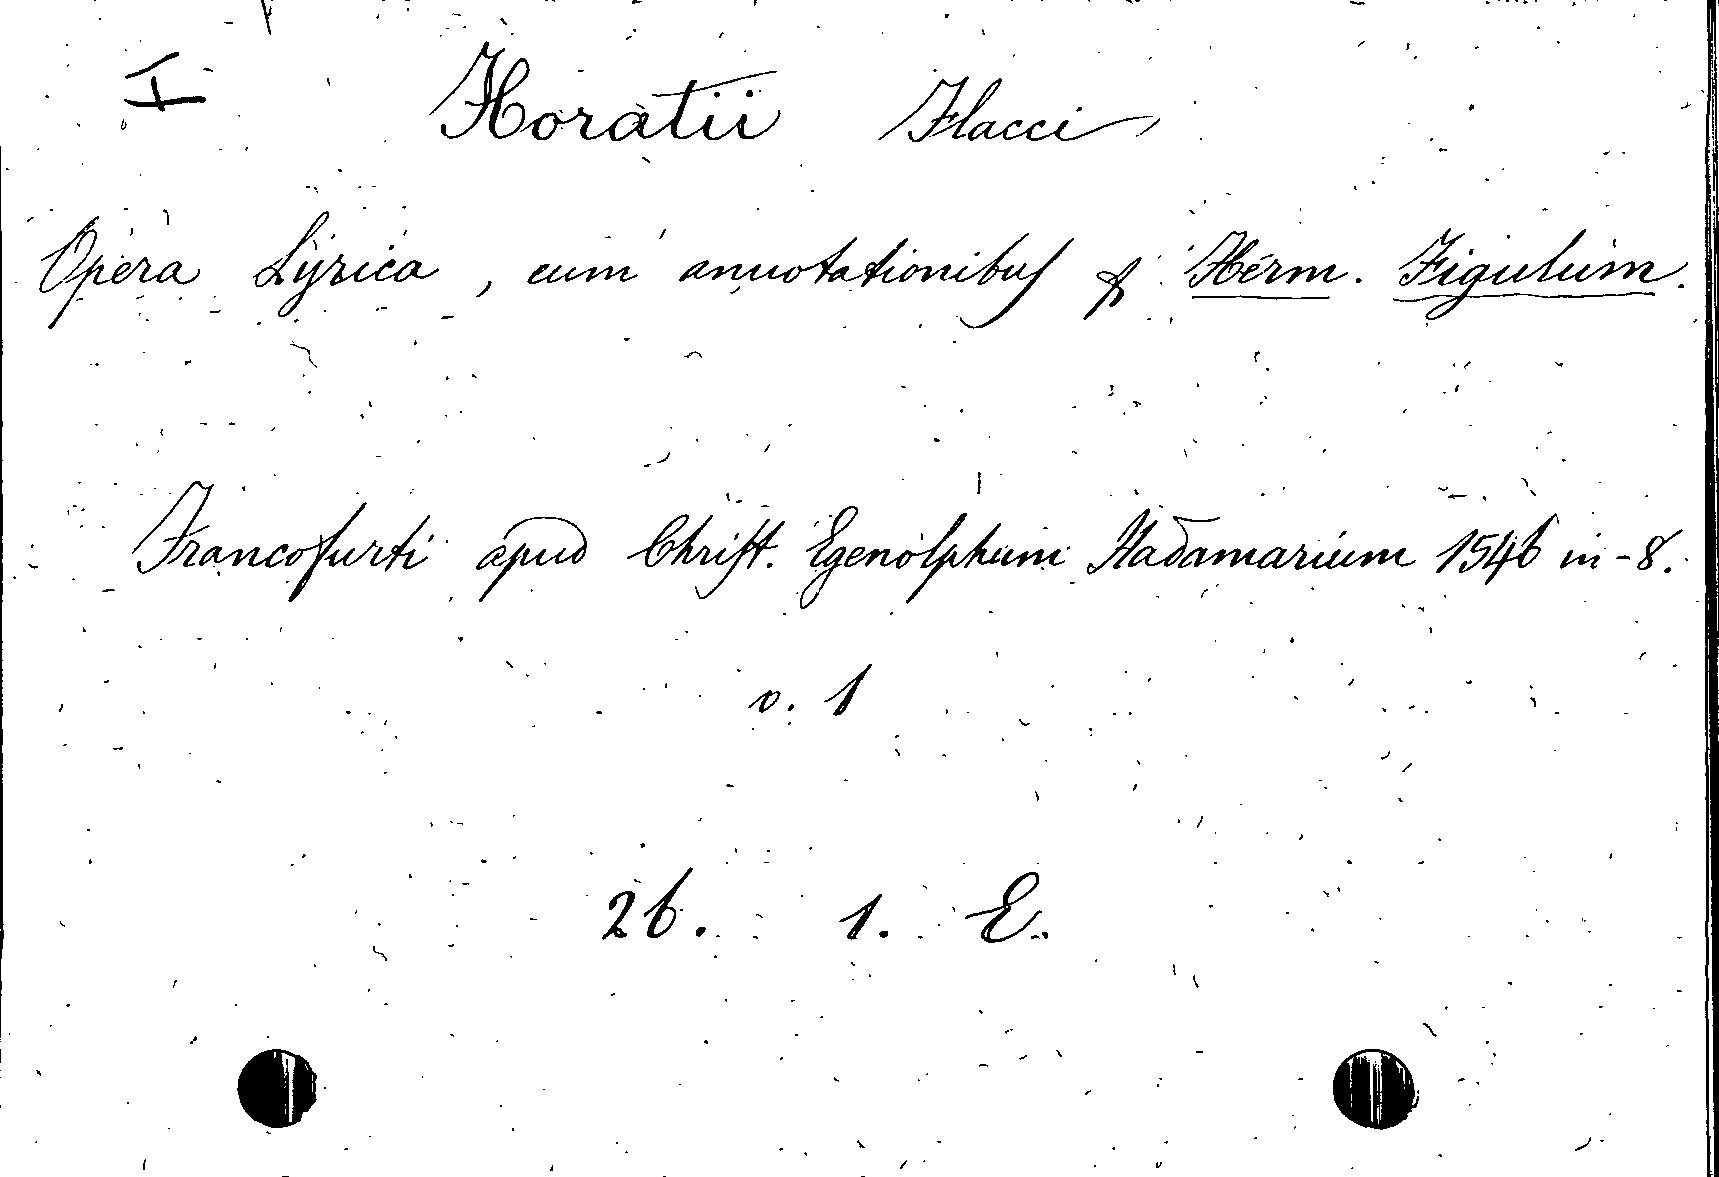 I Horatii Flacci
Opera Lyrica, cum annotationibus p Herm. Figulum.
Francofurti apud Christ. Egenolphum Hadamarium 1546 in-8.
v. 1
26. 1. E.